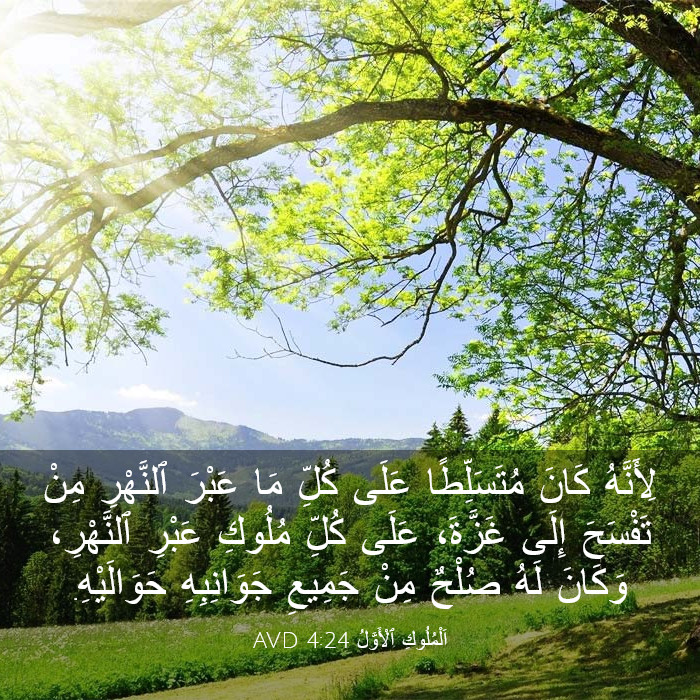 لِأَنَّهُ كَانَ مُتَسَلِّطًا عَلَى كُلِّ مَا عَبْرَ ٱلنَّهْرِ مِنْ
تَفْسَحَ إِلَى غَزَّةَ، عَلَى كُلِّ مُلُوكِ عَبْرِ ٱلنَّهْرِ،
وَكَانَ لَهُ صُلْحٌ مِنْ جَمِيعِ جَوَانِبِهِ حَوَالَيْهِ.
اَلْمُلُوكِ ٱلْأَوَّلُ 4:24 AVD